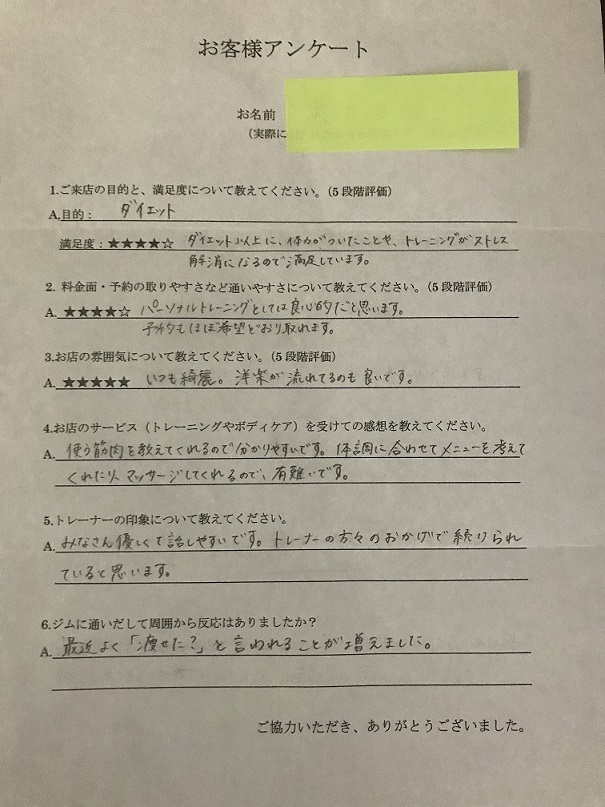 お客様アンケート
お名前
（実際に
1.ご来店の目的と、満足度について教えてください。（5段階評価）
A.目的： ダイエット
満足度：★★★★☆ ダイエット以上に、体力がついたことや、トレーニングがストレス
解消になるので満足しています。
2. 料金面・予約の取りやすさなど通いやすさについて教えてください。（5段階評価）
A. ★★★★☆ パーソナルトレーニングとしては良心的だと思います。
予約もほぼ希望どおり取れます。
3.お店の雰囲気について教えてください。（5段階評価）
A. ★★★★★ いつも綺麗。洋楽が流れてるのも良いです。
4.お店のサービス（トレーニングやボディケア）を受けての感想を教えてください。
A. 使う筋肉を教えてくれるので分かりやすいです。体調に合わせてメニューを考えて
くれたり、マッサージしてくれるので、有難いです。
5.トレーナーの印象について教えてください。
A. みなさん優しくて話しやすいです。トレーナーの方々のおかげで続けられ
ていると思います。
6.ジムに通いだして周囲から反応はありましたか？
A. 最近よく「痩せた？」と言われることが増えました。
ご協力いただき、ありがとうございました。